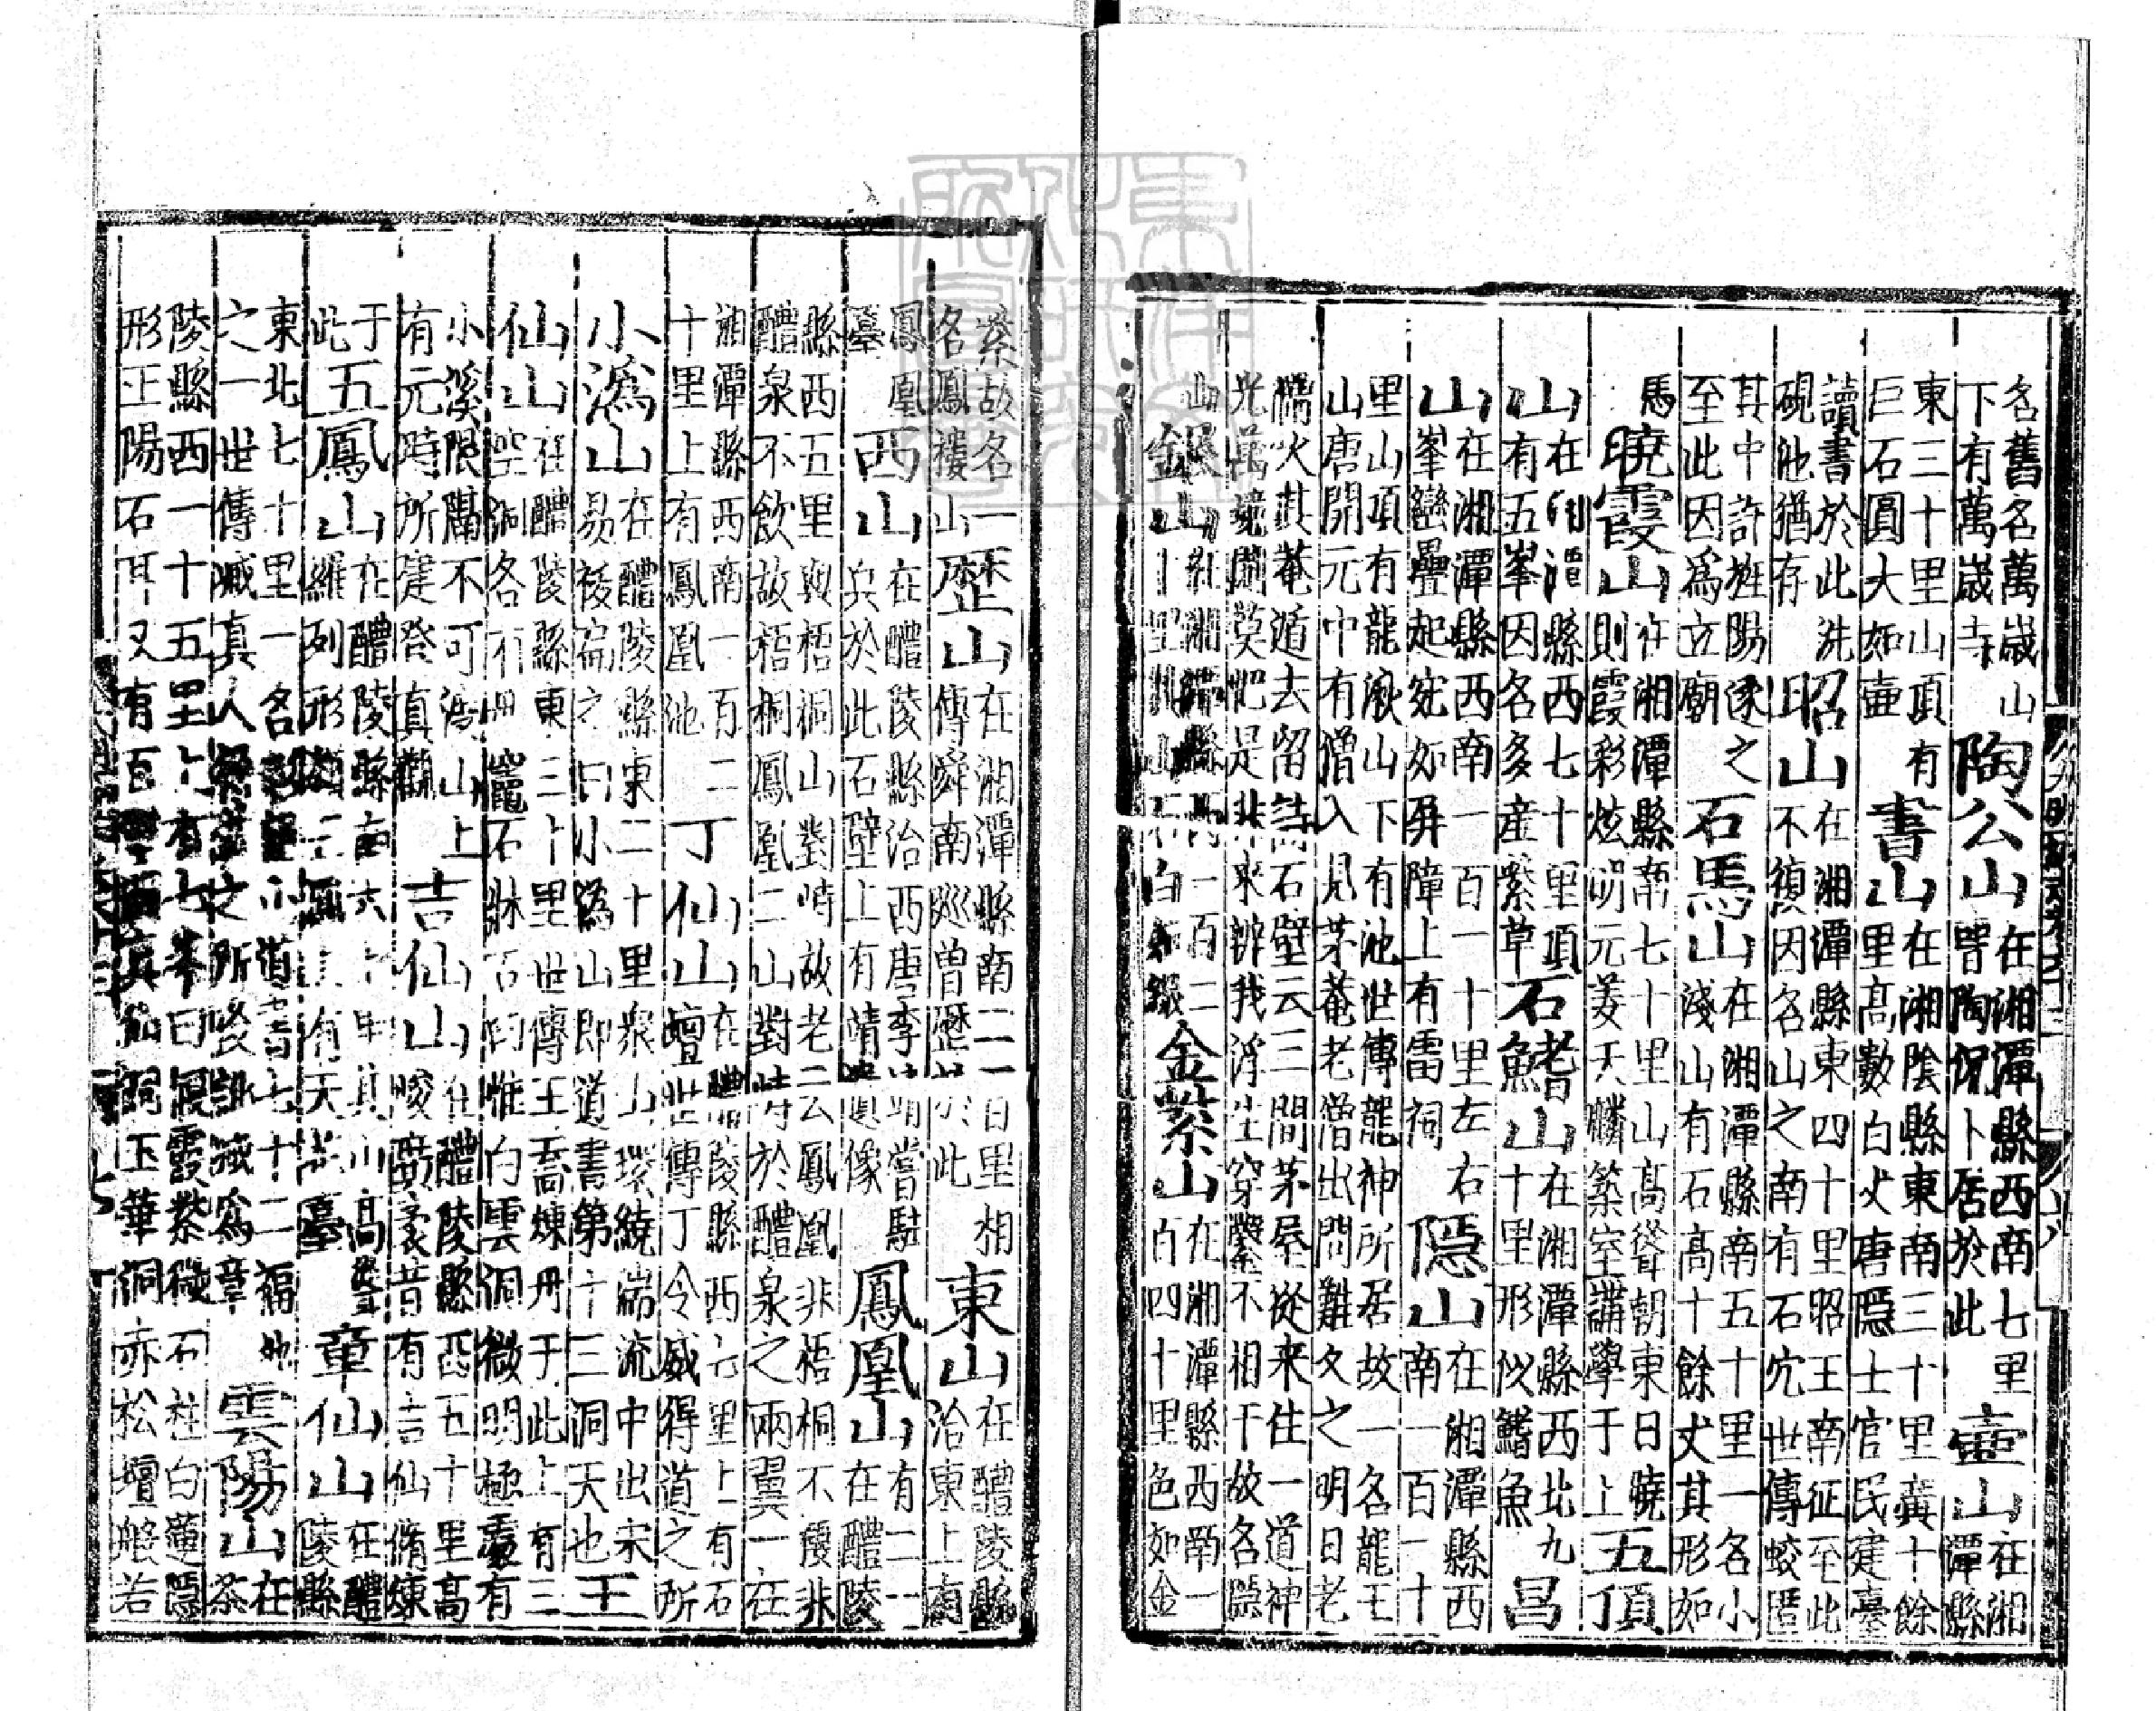 名舊名萬歲山
下有萬歲寺
陶公山
在湘潭縣西南七里
昔陶侃卜居於此
壺山
在湘
潭縣
東三十里山頂有
巨石圓大如壺
書山
在湘陰縣東南三十里廣十餘
里高數百丈唐隱士官民建臺
讀書於此洗
硯池猶存
昭山
在湘潭縣東四十里昭王南征至此
不復因名山之南有石穴世傳蛟匿
其中許旌陽逐之
至此因爲立廟
石馬山
在湘潭縣南五十里一名小
淺山有石高十餘丈其形如
馬
曉霞山
在湘潭縣南七十里山高聳朝東日曉
則霞彩炫明元姜天麟築室講學于上
五頂
山
在湘潭縣西七十里頂
有五峯因名多産紫草
石鰭山
在湘潭縣西北九
十里形似鰭魚
昌
山
在湘潭縣西南一百一十里左右
峯巒疊起宛如屏障上有雷祠
隱山
在湘潭縣西
南一百一十
里山頂有龍湫山下有池世傳龍神所居故一名龍王
山唐開元中有僧入見茅菴老僧出問難久之明日老
僧火其菴遁去留詩石壁云三間茅屋從来住一道神
光萬境閒莫把是非來辨我浮生穿鑿不相干故名隱
山
銀山
在湘潭縣西一百二
十里
金紫山
在湘潭縣西南一
百四十里色如金
紫故名一
名鳳樓山
歷山
在湘潭縣南二百里相
傳舜南廵曽歷於此
東山
在醴陵縣
治東上有
鳳凰
臺
西山
在醴陵縣治西唐李靖嘗駐
兵於此石壁上有靖遺像
鳳凰山
有二一
在醴陵
縣西五里與梧桐山對時故老云鳳凰非梧桐不棲非
醴泉不飲故梧桐鳳凰二山對峙於醴泉之兩翼一在
湘潭縣西南一百二
十里上有鳳凰池
丁仙山
在醴陵縣西六里上有石
壇世傳丁令威得道之所
小潙山
在醴陵縣東二十里衆山環繞湍流中出宋
易祓徧之曰小潙山即道書第十三洞天也
王
仙山
在醴陵縣東三十里世傳王喬煉丹于此上有三
空洞各有丹竈石牀石臼惟白雲洞微明極處有
小溪限隔不可渡山上
有元時所建登眞觀
吉仙山
在醴陵縣西五十里高
峻廣袤昔有吉仙脩煉
于
此
五鳳山
在醴陵縣南六十里其山高聳
羅列形
章仙山
在醴
陵縣
東北七十里一名
之一世傳臧真人
雲陽山
在
茶
陵縣西一十五里上有七峯曰偃霞紫微石柱白蓮隱
形正陽石耳又有
玉華洞赤松壇般若